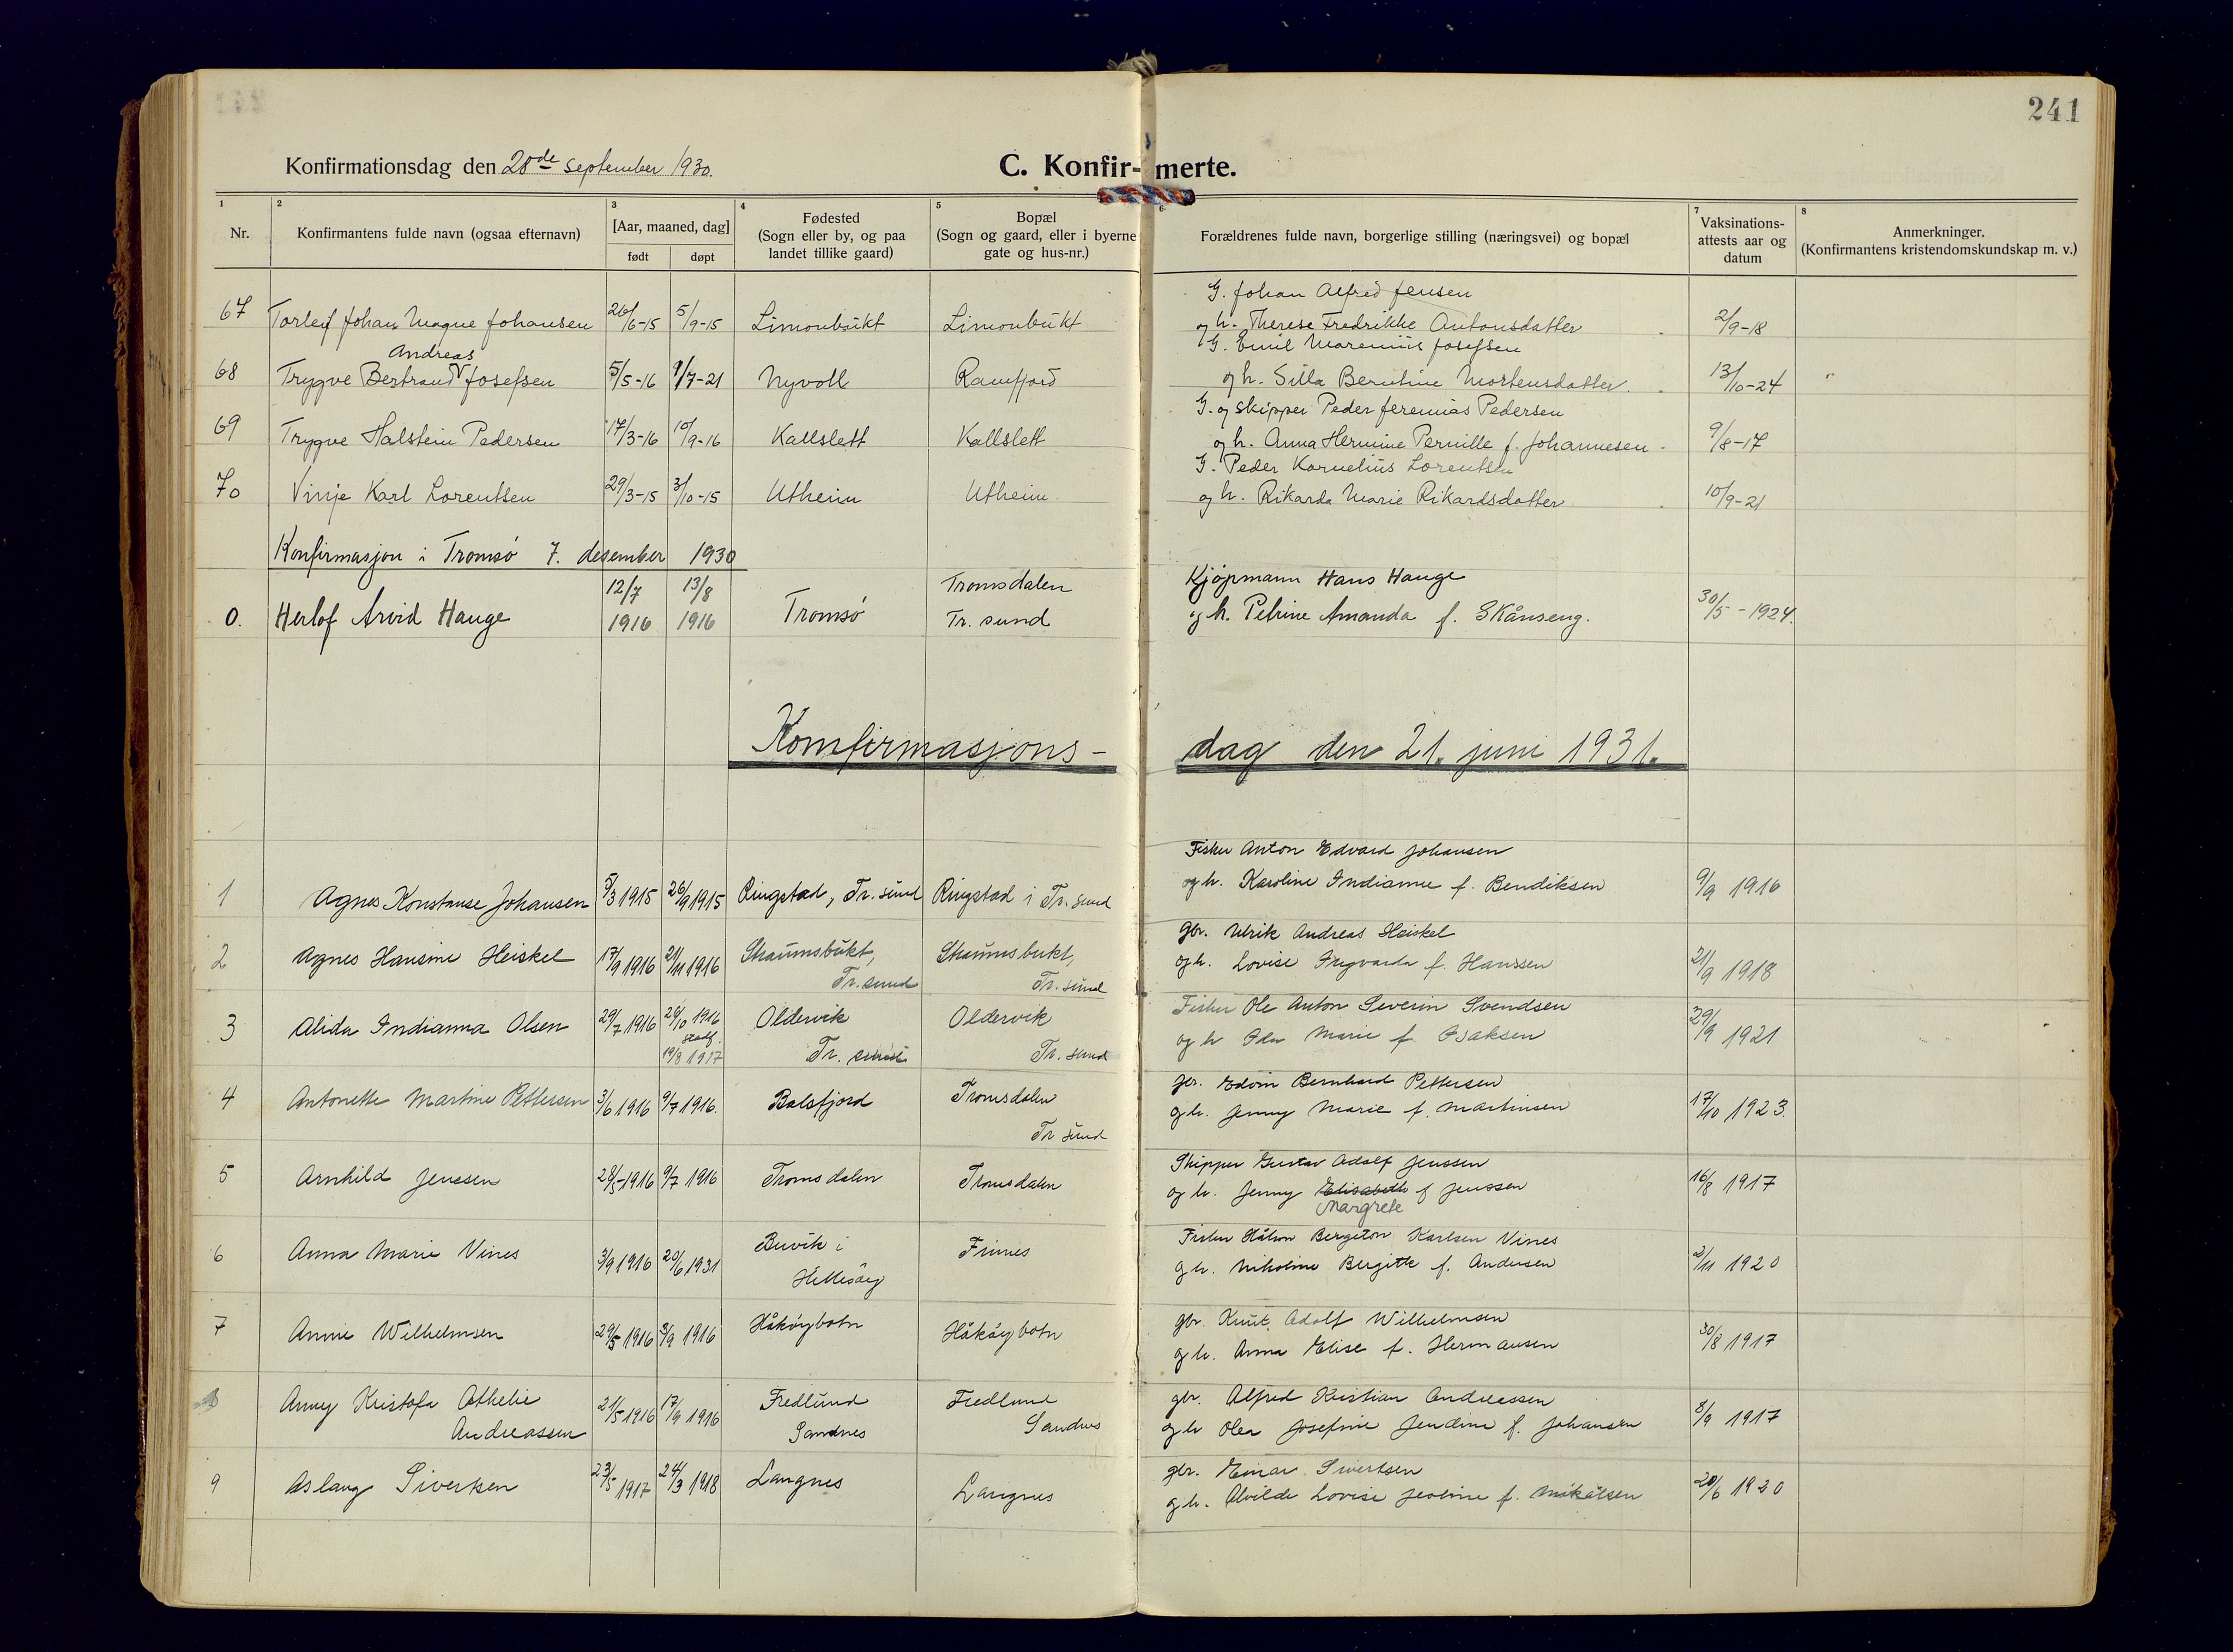 241
Konfirmationsdag den 28de september 1930.
C. Konfir- merte.
1 2 3 4 5 6 7 8
Nr.
Konfirmantens fulde navn (ogsaa efternavn)
[Aar, maaned, dag]
født døpt
Fødested
(Sogn eller by, og paa
landet tillike gaard)
Bopæl
(Sogn og gaard, eller i byerne
gate og hus-nr.)
Forældrenes fulde navn, borgerlige stilling (næringsvei) og bopæl
Vaksinations-
attests aar og
datum
Anmerkninger.
(Konfirmantens kristendomskundskap m. v.)
G. Johan Alfred Jensen
67 Torleif Johan Magne Johansen 26/6-15 5/9-15 Limonbukt Limonbukt og h. Therese Fredrikke Antonsdatter 2/9-18
Andreas
G. Emil Marenius Josefsen
68 Trygve Bertrand Josefsen 5/5-16 /7-21 Nyvoll Ramfjord og h. Silla Berntine Mortensdatter. 13/10-24
G. og skipper Peder Jeremias Pedersen
69 Trygve Halstein Pedersen 17/3-16 10/9-16 Kallslett Kallslett og h. Anna Hermine Pernille f. Johannesen 9/8-17
G. Peder Kornelius Lorentsen
70 Vinje Karl Lorentsen 29/3-15 3/10-15 Utheim Utheim og h. Rikarda Marie Rikardsdatter 10/9-21
Konfirmasjon i Tromsø 7. desember 1930
12/7 13/8 Tromsdalen Kjøpmann Hans Hauge
0. Herlof Arvid Hauge 1916 1916 Tromsø Tr. sund og h. Petrine Amanda f. Skånseng. 30/5-1924.
Komfirmasjons- dag den 21. juni 1931.
Fisker Anton Edvard Johansen
1 Agnes Konstanse Johansen 5/3 1915 26/9 1915 Ringstad, Tr. sund Ringstad i Tr. sund og h. Karoline Indianne f. Bendiksen 9/9 1916
gbr. Ulrik Andreas Heiskel
2 Agnes Hansine Heiskel 17/9 1916 21/11 1916 Skaumsbukt, Skaumsbukt, og h. Lovise Ingvarda f. Hanssen 21/9 1918
Tr. sund Tr. sund
Fisker Ole Anton Severin Svendsen
3 Alida Indianna Olsen 29/7 1916 28/10 1916 Oldervik Oldervik og h Marie f. Isaksen 29/9 1921
Stadf.
19/8 1917 Tr. sund Tr. sund
gbr. Edvin Bernhard Pettersen
4 Antonette Martine Pettersen 3/6 1916 9/7 1916. Balsfjord Tromsdalen og h. Jenny Marie f. Martinsen 17/10 1923.
Tr sund
Skipper Gustav Adolf Jenssen
5 Arnhild Jenssen 28/5-1916 9/7 1916 Tromsdalen Tromsdalen og h. Jenny Elisabeth f Jenssen 16/8 1917
Margrete
Fisker Håkon Bergeton Karlsen Vines
6 Anna Marie Vines 3/9 1916 20/6 1931 Buvik i Finnes og h. Nikoline Bergitte f. Andersen 2/11 1920
Hillesøy
gbr. Knut Adolf Wilhelmsen
7 Annie Wilhelmsen 29/5 1916 3/9 1916 Håkøybotn Håkøybotn og h. Anna Elise f. Hermansen 30/8 1917
gbr. Alfred Kristian Andreassen
8 Anny Kristofa Athelie 21/5 1916 17/9 1916 Fredlund Fredlund og h Olea Josefine Jendine f. Johansen 8/9 1917
Andreassen Sandnes Sandnes
gbr. Einar Sivertsen
9 Aslaug Sivertsen 23/5 1917 24/3 1918 Langnes Langnes og h. Alvilde Lovise Jentine f. Mikalsen 20/6 1920